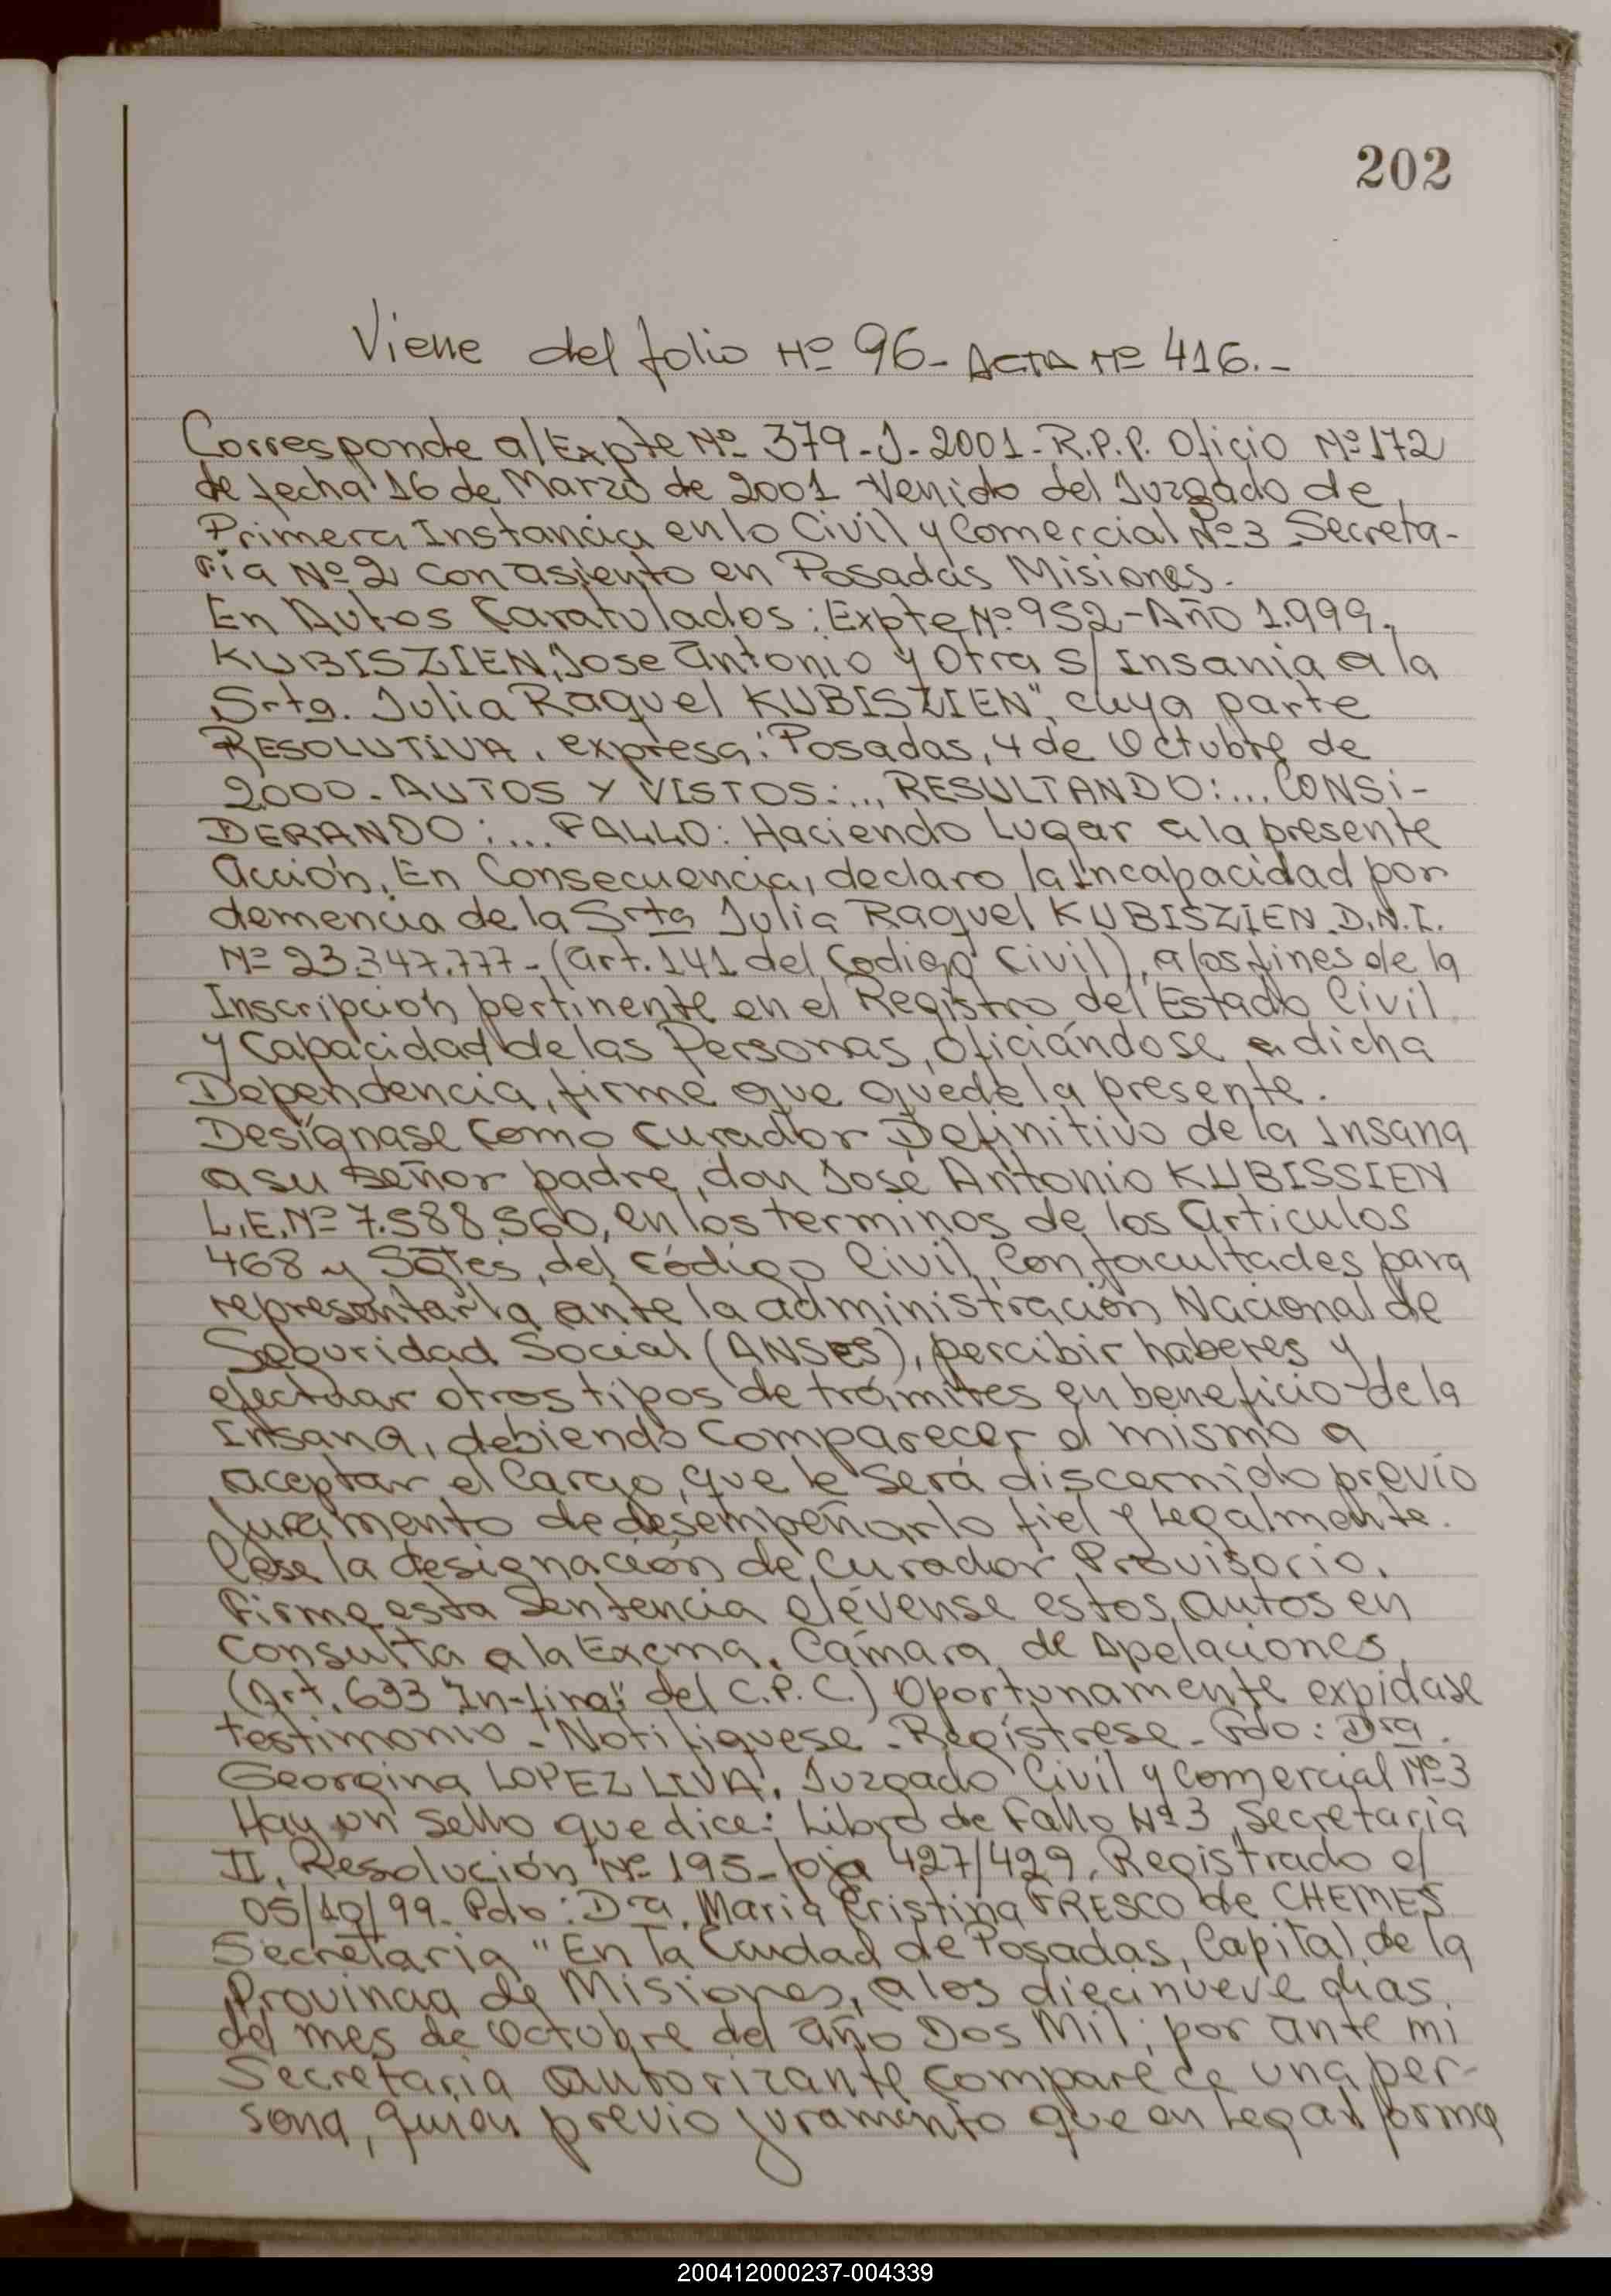 202
Viene del folio Nº 96- ACTA Nº 416.-
Corresponde al Expte Nº 379-J-2001-R.P.P. Oficio Nº 172
de fecha 16 de Marzo de 2001 Venido del Juzgado de
Primera Instancia en lo Civil y Comercial Nº 3 Secreta-
ria Nº 2 con asiento en Posadas Misiones.
En Autos Caratulados: Expte Nº 952-Año 1.999.
KUBISZIEN, "Jose Antonio y Otra S/ Insania a la
Srta. Julia Raquel KUBISZIEN", cuya parte
RESOLUTIVA, expresa: Posadas, 4 de Octubre de
2000. AUTOS Y VISTOS:... RESULTANDO:... CONSI-
DERANDO:... FALLO: Haciendo Lugar a la presente
Acción, En Consecuencia, declaro la Incapacidad por
demencia de la Srta Julia Raquel KUBISZIEN. D.N.I.
Nº 23.347.777-(art. 141 del Codigo Civil), a los fines de la
Inscripción pertinente en el Registro del Estado Civil
y Capacidad de las Personas, Oficiándose a dicha
Dependencia, firme que quede la presente.
Desígnase Como curador Definitivo de la Insana
a su señor padre, don José Antonio KUBISSIEN
L.E. Nº 7.588.560, en los terminos de los Articulos
468 y Sgtes, del Código Civil, Con facultades para
representarla ante la administración Nacional de
Seguridad Social (ANSES), percibir haberes y
efectuar otros tipos de trámites en beneficio de la
Insana, debiendo Comparecer el mismo a
aceptar el Cargo, que le Será discernido previo
Juramento de desempeñarlo fiel y Legalmente.
Cese la designación de Curador Provisorio.
Firme esta Sentencia elévense estos autos en
Consulta a la Excma. Cámara de Apelaciones
(Art. 633 "In-fina" del C.P.C.) Oportunamente expidase
testimonio - Notifiquese - Regístrese - Fdo: Dra.
Georgina LOPEZ LIVA. Juzgado Civil y Comercial Nº 3
Hay un Sello que dice: Libro de Fallo Nº 3, Secretaria
II, Resolución Nº 195- foja 427/429, Registrado el
05/10/99. Fdo: Dra. Maria Cristina FRESCO de CHEMES
Secretaria "En la Ciudad de Posadas, Capital de la
Provincia de Misiones, a los diecinueve dias
del mes de Octubre del año Dos Mil; por ante mi
Secretaria autorizante Comparece una per-
sona, quien previo juramento que en Legal forma
200412000237-004339